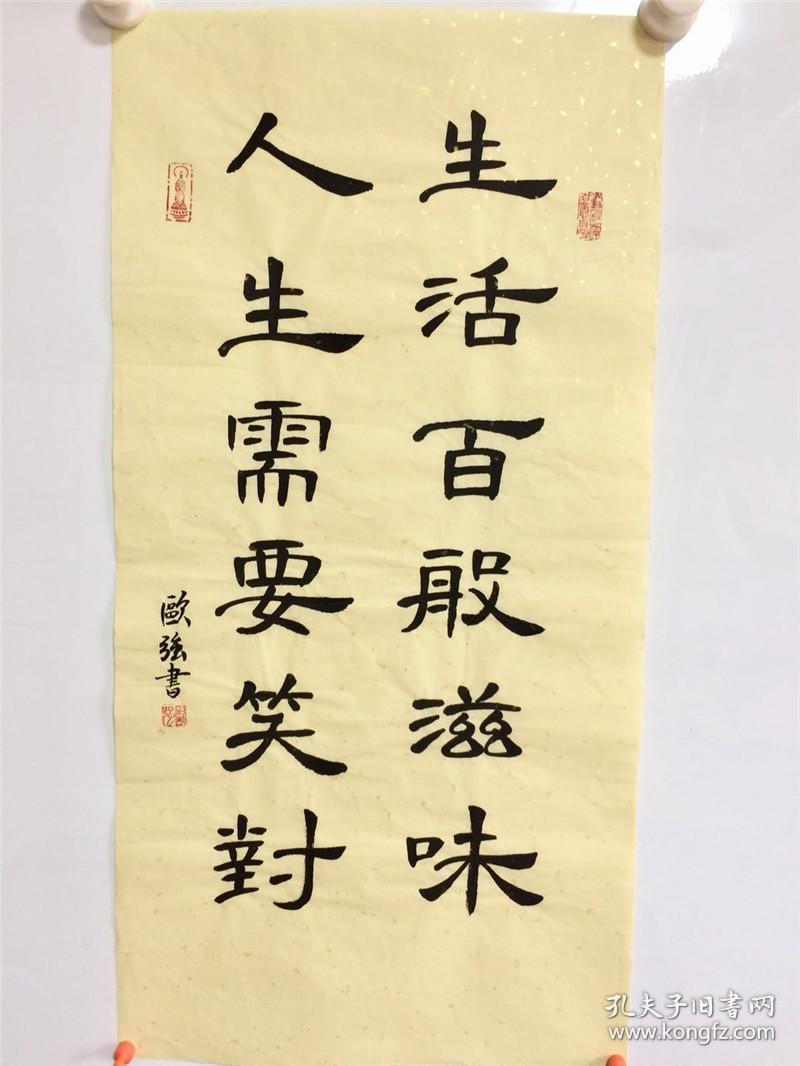 生活百般滋味
人生需要笑對
歐強書
孔夫子旧書网
www.kongfz.com